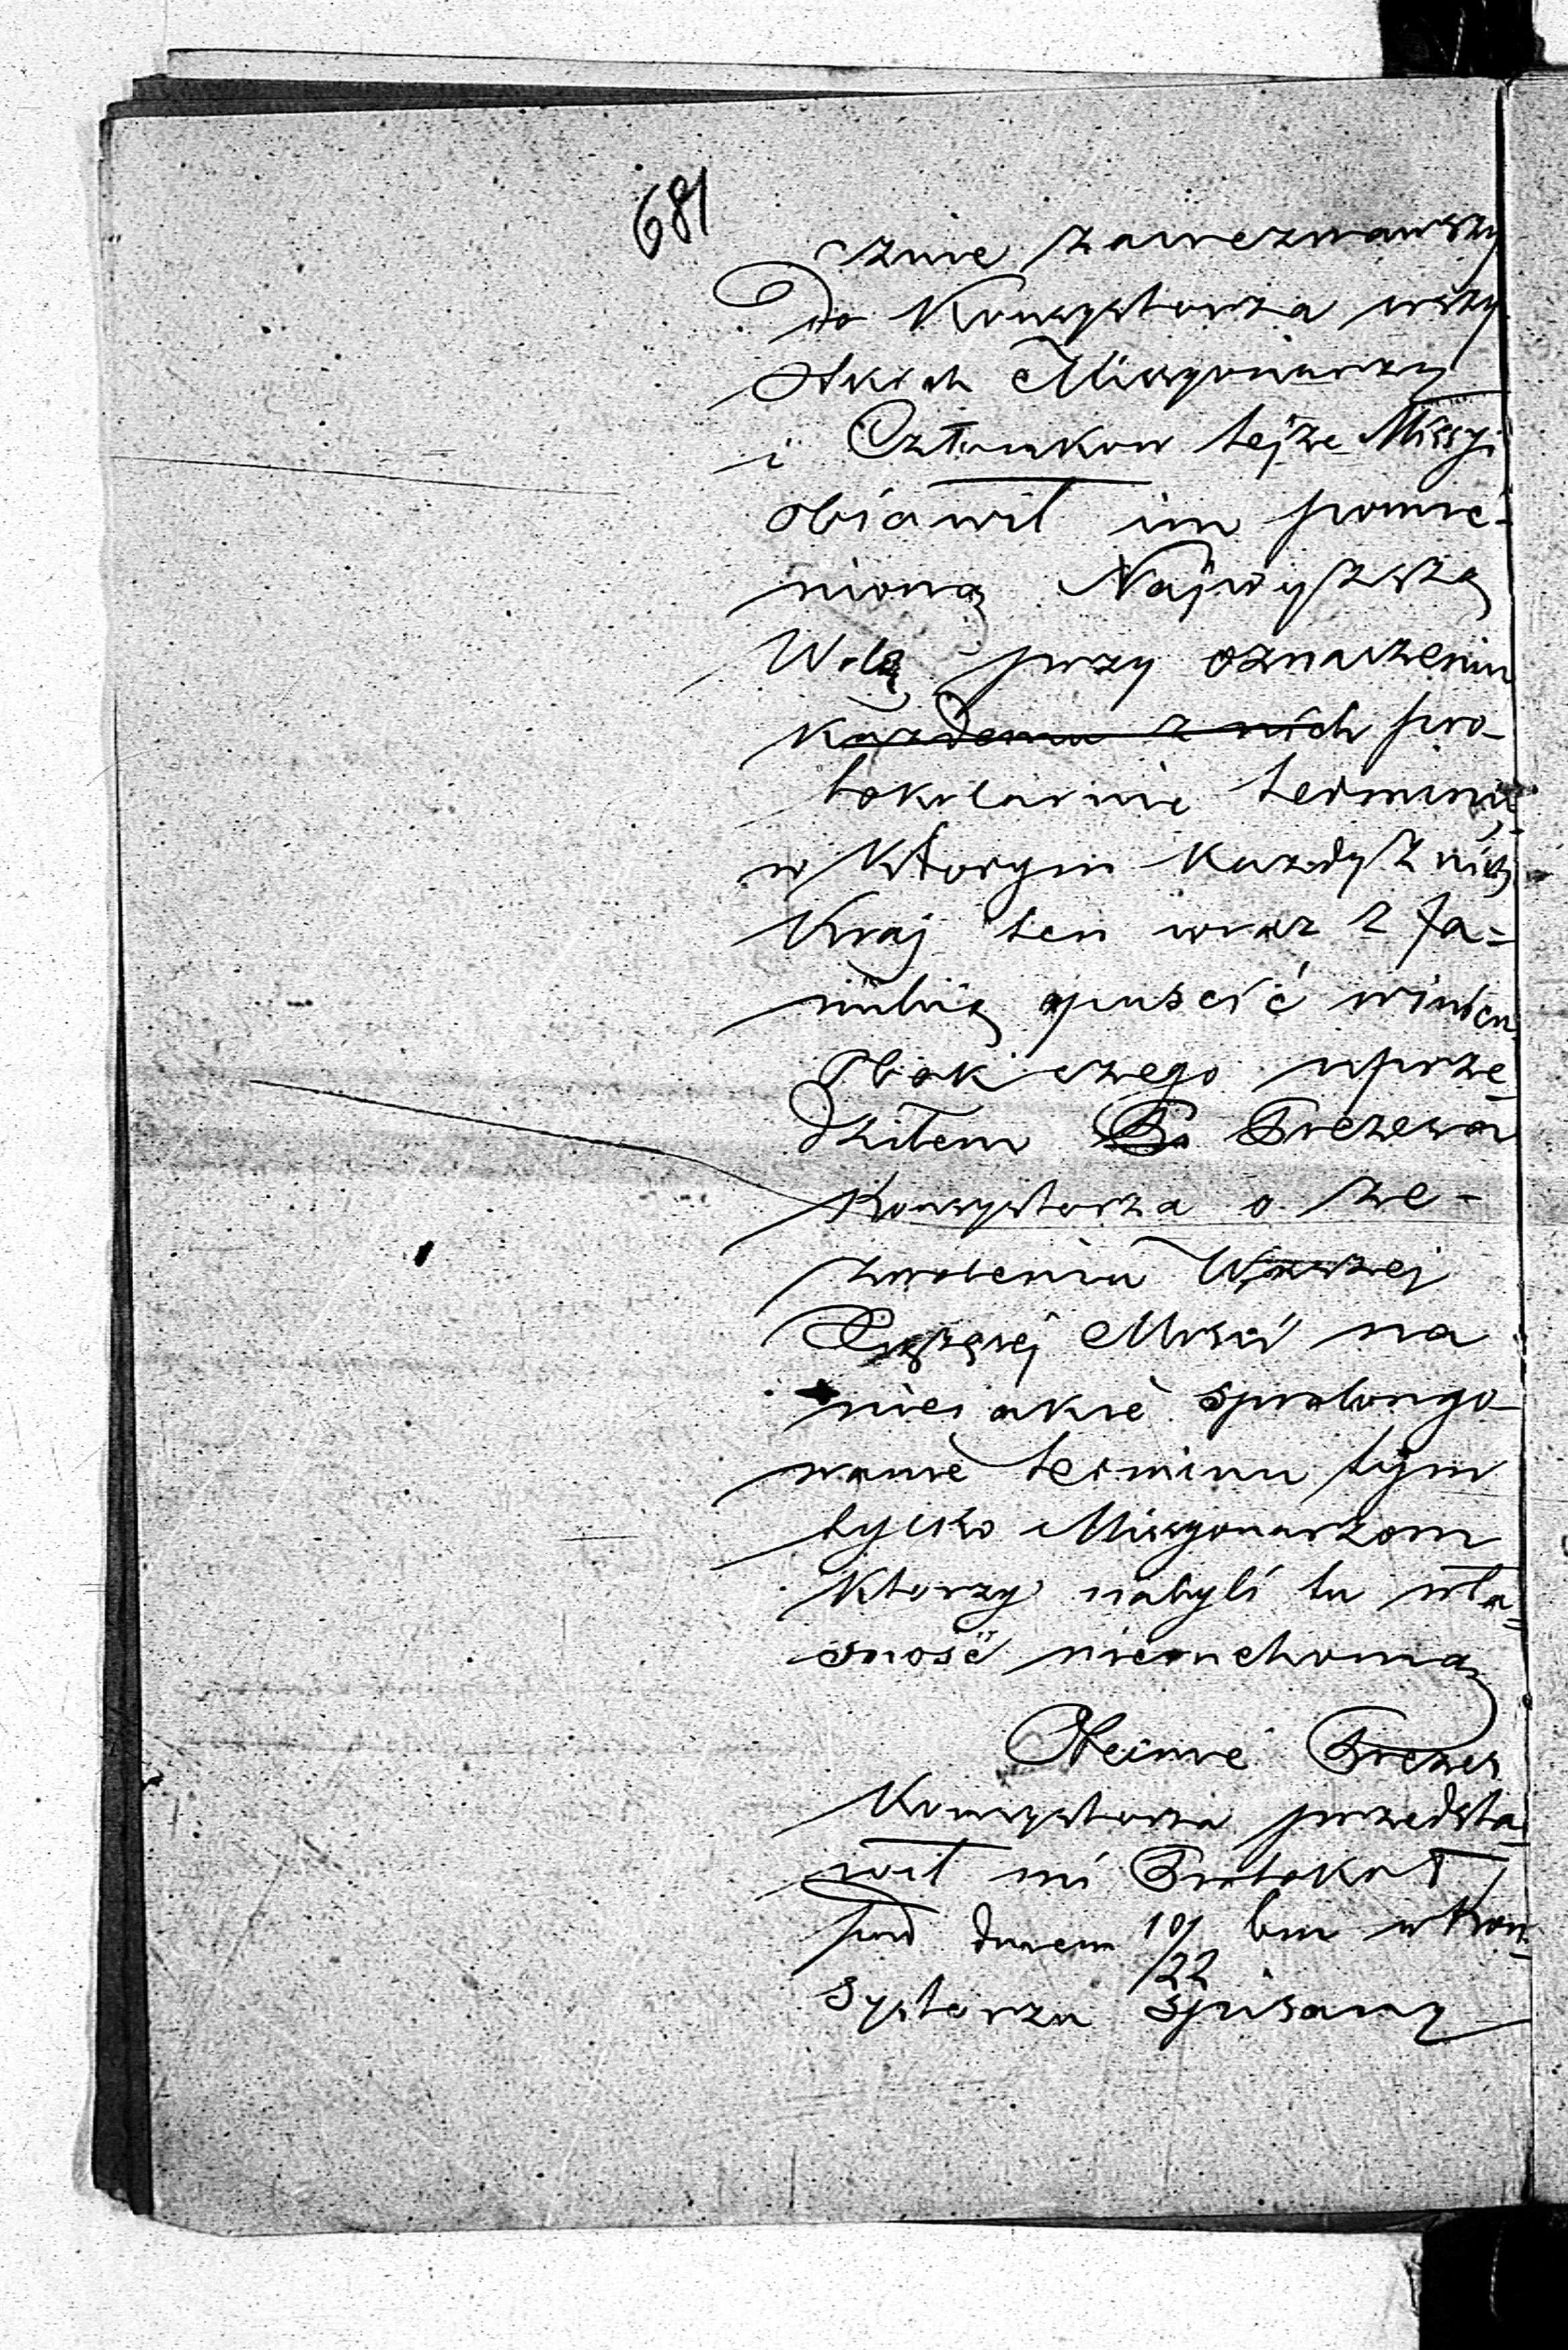 681
cznie zawezwawszy
do Konsystorza wszy
stkich Missyonarzy
i Członkow tejże Missyi
obiawił im pomie-
nioną Najwyższą
Wolą przy oznaczeniu
każdemu z nich pro-
tokularnie terminu,
w ktorym każdy z nich
Kraj ten wraz z fa=
milią opuścić winien
Obok czego uprze
dziłem Prezesa
Konsystorza o ze-
zwoleniu Waszej
Xiążęcej Mości na
nieiakie sprolongo-
wanie terminu tym
tylko Missyonarzom
ktorzy nabyli tu wła=
sność nieruchomą
Obecnie Prezes
Konsystorza przedsta
wił mi Protokoł
pod dniem 10/22 bm w Kon-
systorzu spisany